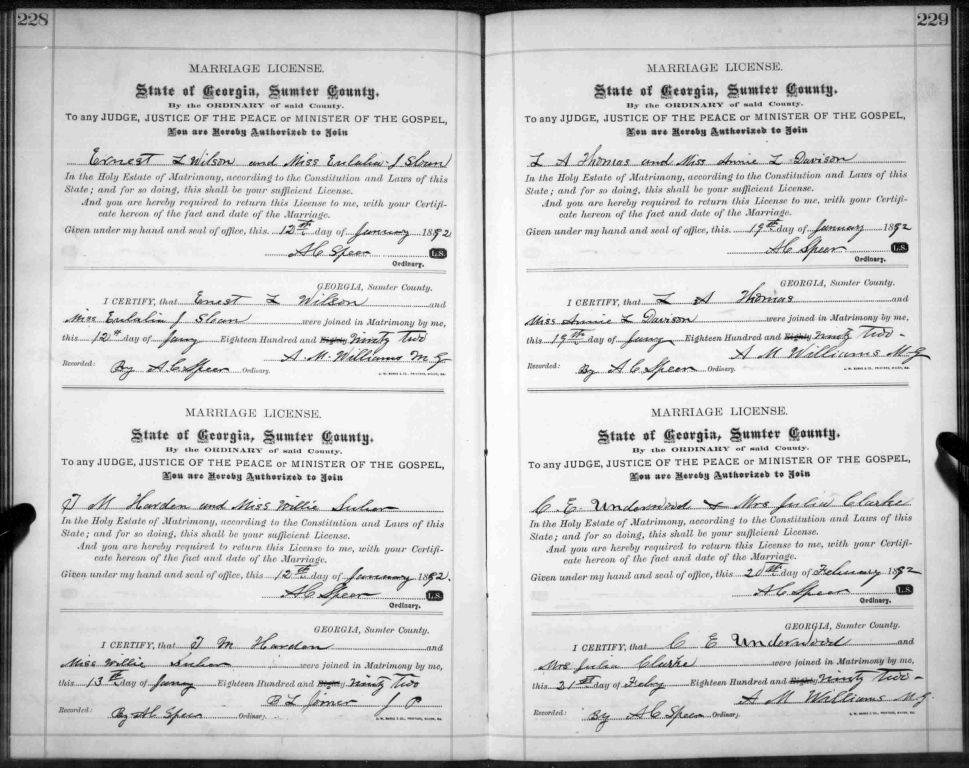 228
MARRIAGE LICENSE.
State of Georgia, Sumter County.
By the ORDINARY of said County.
To any JUDGE, JUSTICE OF THE PEACE or MINISTER OF THE GOSPEL,
You are Hereby Authorized to Join
Ernest L Wilson and Miss Eulalia J Sloan
In the Holy Estate of Matrimony, according to the Constitution and Laws of this
State; and for so doing, this shall be your sufficient License.
And you are hereby required to return this License to me, with your Certifi-
cate hereon of the fact and date of the Marriage.
Given under my hand and seal of office, this 12th day of January 1892
A C Speer L.S.
Ordinary.
GEORGIA, Sumter County.
I CERTIFY, that Ernest L Wilson and
Miss Eulalia J Sloan were joined in Matrimony by me,
this 12th day of Jany Eighteen Hundred and Eighty Ninty Two
A. M. Williams M G
Recorded: By A C Speer Ordinary.
MARRIAGE LICENSE.
State of Georgia, Sumter County.
By the ORDINARY of said County.
To any JUDGE, JUSTICE OF THE PEACE or MINISTER OF THE GOSPEL,
You are Hereby Authorized to Join
J M Harden and Miss Willie
In the Holy Estate of Matrimony, according to the Constitution and Laws of this
State; and for so doing, this shall be your sufficient License.
And you are hereby required to return this License to me, with your Certifi-
cate hereon of the fact and date of the Marriage.
Given under my hand and seal of office, this 12th day of January 1892.
A C Speer L.S.
Ordinary.
GEORGIA, Sumter County.
I CERTIFY, that J M Harden and
Miss Willie were joined in Matrimony by me,
this 13th day of Jany Eighteen Hundred and Eighty Ninty Two
L Joiner J P
Recorded: By A C Speer Ordinary.
229
MARRIAGE LICENSE.
State of Georgia, Sumter County.
By the ORDINARY of said County.
To any JUDGE, JUSTICE OF THE PEACE or MINISTER OF THE GOSPEL,
You are Hereby Authorized to Join
L A Thomas and Miss Annie L Davison
In the Holy Estate of Matrimony, according to the Constitution and Laws of this
State; and for so doing, this shall be your sufficient License.
And you are hereby required to return this License to me, with your Certifi-
cate hereon of the fact and date of the Marriage.
Given under my hand and seal of office, this 19th day of January 1892
A C Speer L.S.
Ordinary.
GEORGIA, Sumter County.
I CERTIFY, that L A Thomas and
Miss Annie L Davison were joined in Matrimony by me,
this 19th day of Jany Eighteen Hundred and Eighty Ninty Two -
A M Williams M G
Recorded: By A C Speer Ordinary.
MARRIAGE LICENSE.
State of Georgia, Sumter County.
By the ORDINARY of said County.
To any JUDGE, JUSTICE OF THE PEACE or MINISTER OF THE GOSPEL,
You are Hereby Authorized to Join
C. E. Underwood & Mrs Julia Clarke
In the Holy Estate of Matrimony, according to the Constitution and Laws of this
State; and for so doing, this shall be your sufficient License.
And you are hereby required to return this License to me, with your Certifi-
cate hereon of the fact and date of the Marriage.
Given under my hand and seal of office, this 20th day of February 1892
A C Speer L.S.
Ordinary.
GEORGIA, Sumter County.
I CERTIFY, that C E Underwood and
Mrs Julia Clarke were joined in Matrimony by me,
this 21st day of Feby Eighteen Hundred and Eighty Ninty Two -
A M Williams M.G.
Recorded: By A C Speer Ordinary.